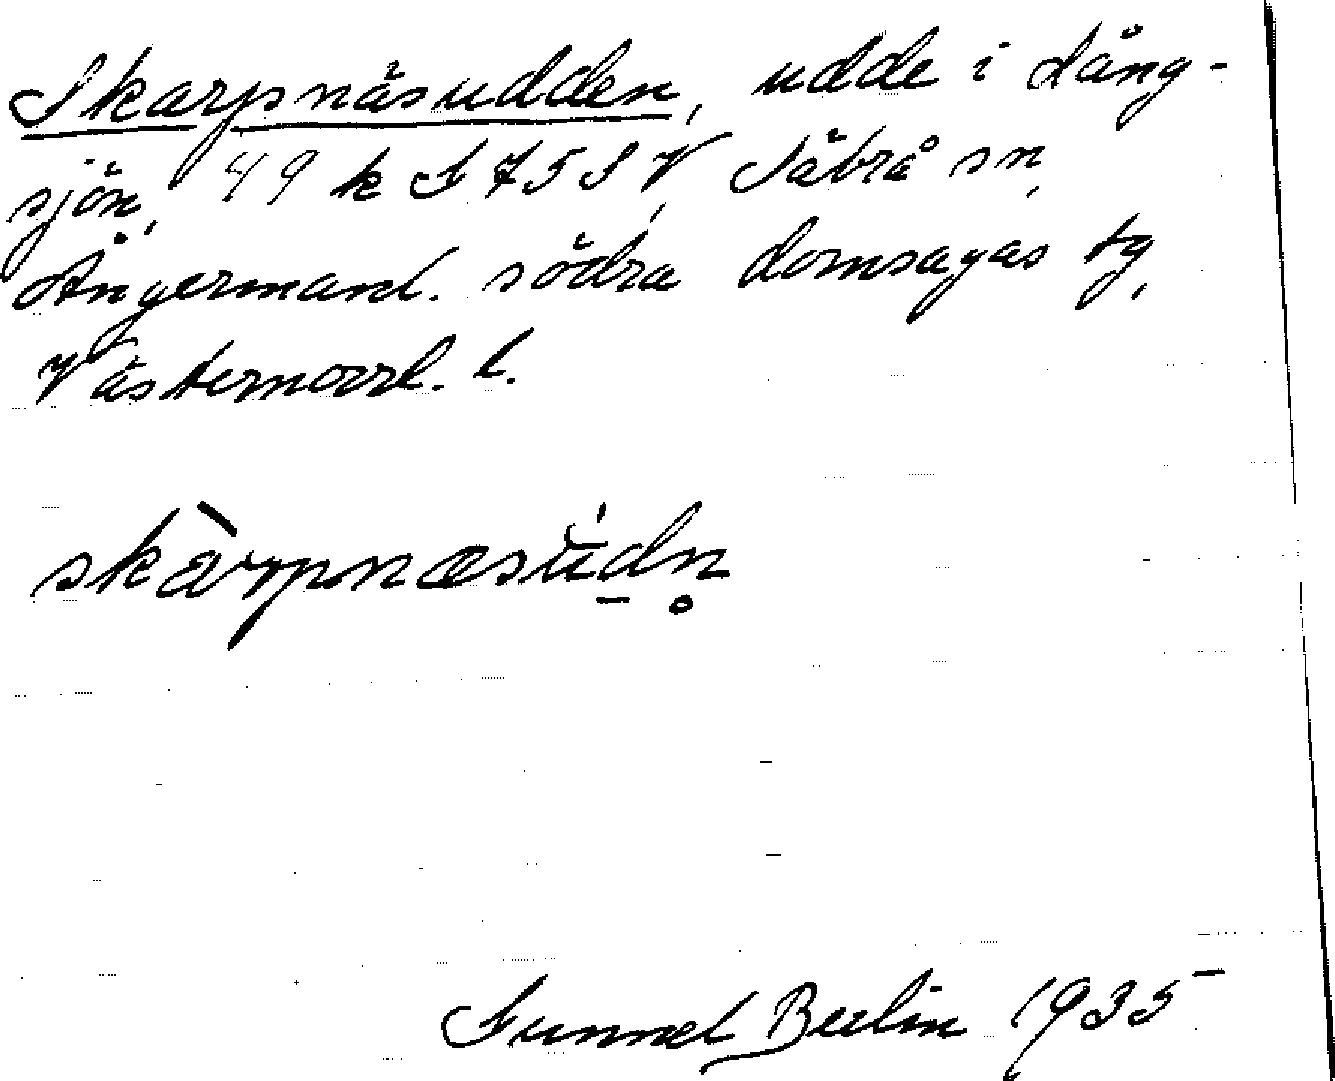 Skarpnäsudden, udde i Lång-
sjön, 49 k S 75 S V, Säbrå sn,
Ångermanl. södra domsagas tg,
Västernorrl. l.
skàrpnæsúdn̥
Gunnel Beilin 1935